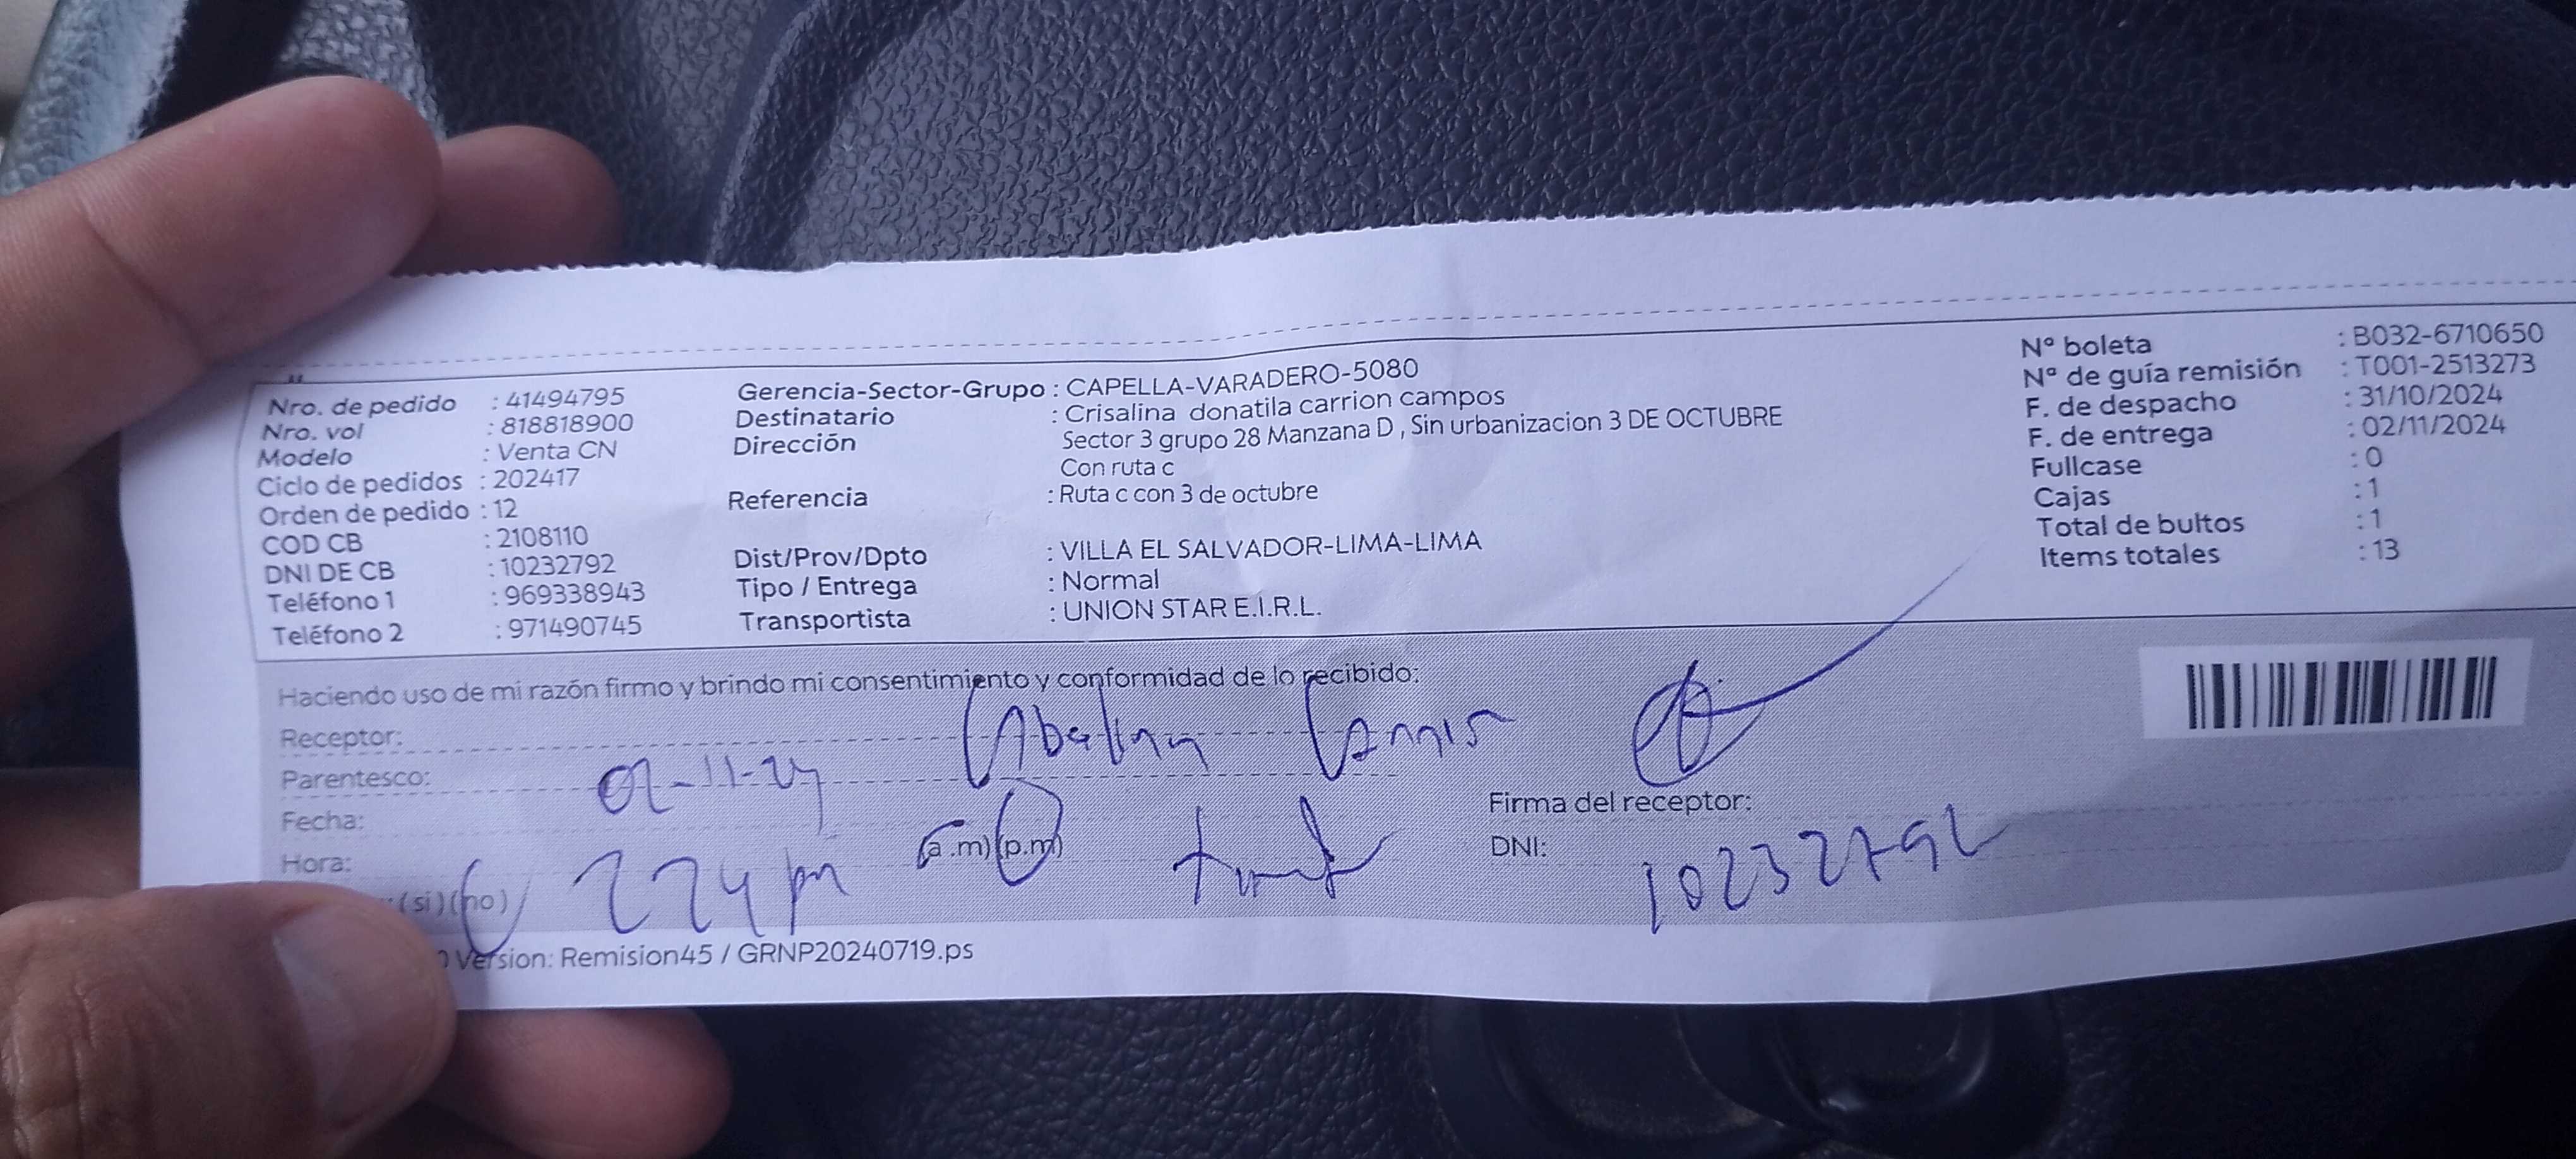 Nro. de pedido : 41494795
Nro. vol : 818818900
Modelo : Venta CN
Ciclo de pedidos : 202417
Orden de pedido : 12
COD CB : 2108110
DNI DE CB : 10232792
Teléfono 1 : 969338943
Teléfono 2 : 971490745
Gerencia-Sector-Grupo : CAPELLA-VARADERO-5080
Destinatario : Crisalina donatila carrion campos
Dirección Sector 3 grupo 28 Manzana D , Sin urbanizacion 3 DE OCTUBRE
Con ruta c
Referencia : Ruta c con 3 de octubre
Dist/Prov/Dpto : VILLA EL SALVADOR-LIMA-LIMA
Tipo / Entrega : Normal
Transportista : UNION STAR E.I.R.L.
Nº boleta : B032-6710650
Nº de guía remisión : T001-2513273
F. de despacho : 31/10/2024
F. de entrega : 02/11/2024
Fullcase : 0
Cajas : 1
Total de bultos : 1
Items totales : 13
Haciendo uso de mi razón firmo y brindo mi consentimiento y conformidad de lo recibido:
Receptor:
Parentesco:
Fecha: 02-11-24
Hora: 224 pm (a.m) (p.m)
(si) (no)
Firma del receptor:
DNI: 10232792
Version: Remision45 / GRNP20240719.ps